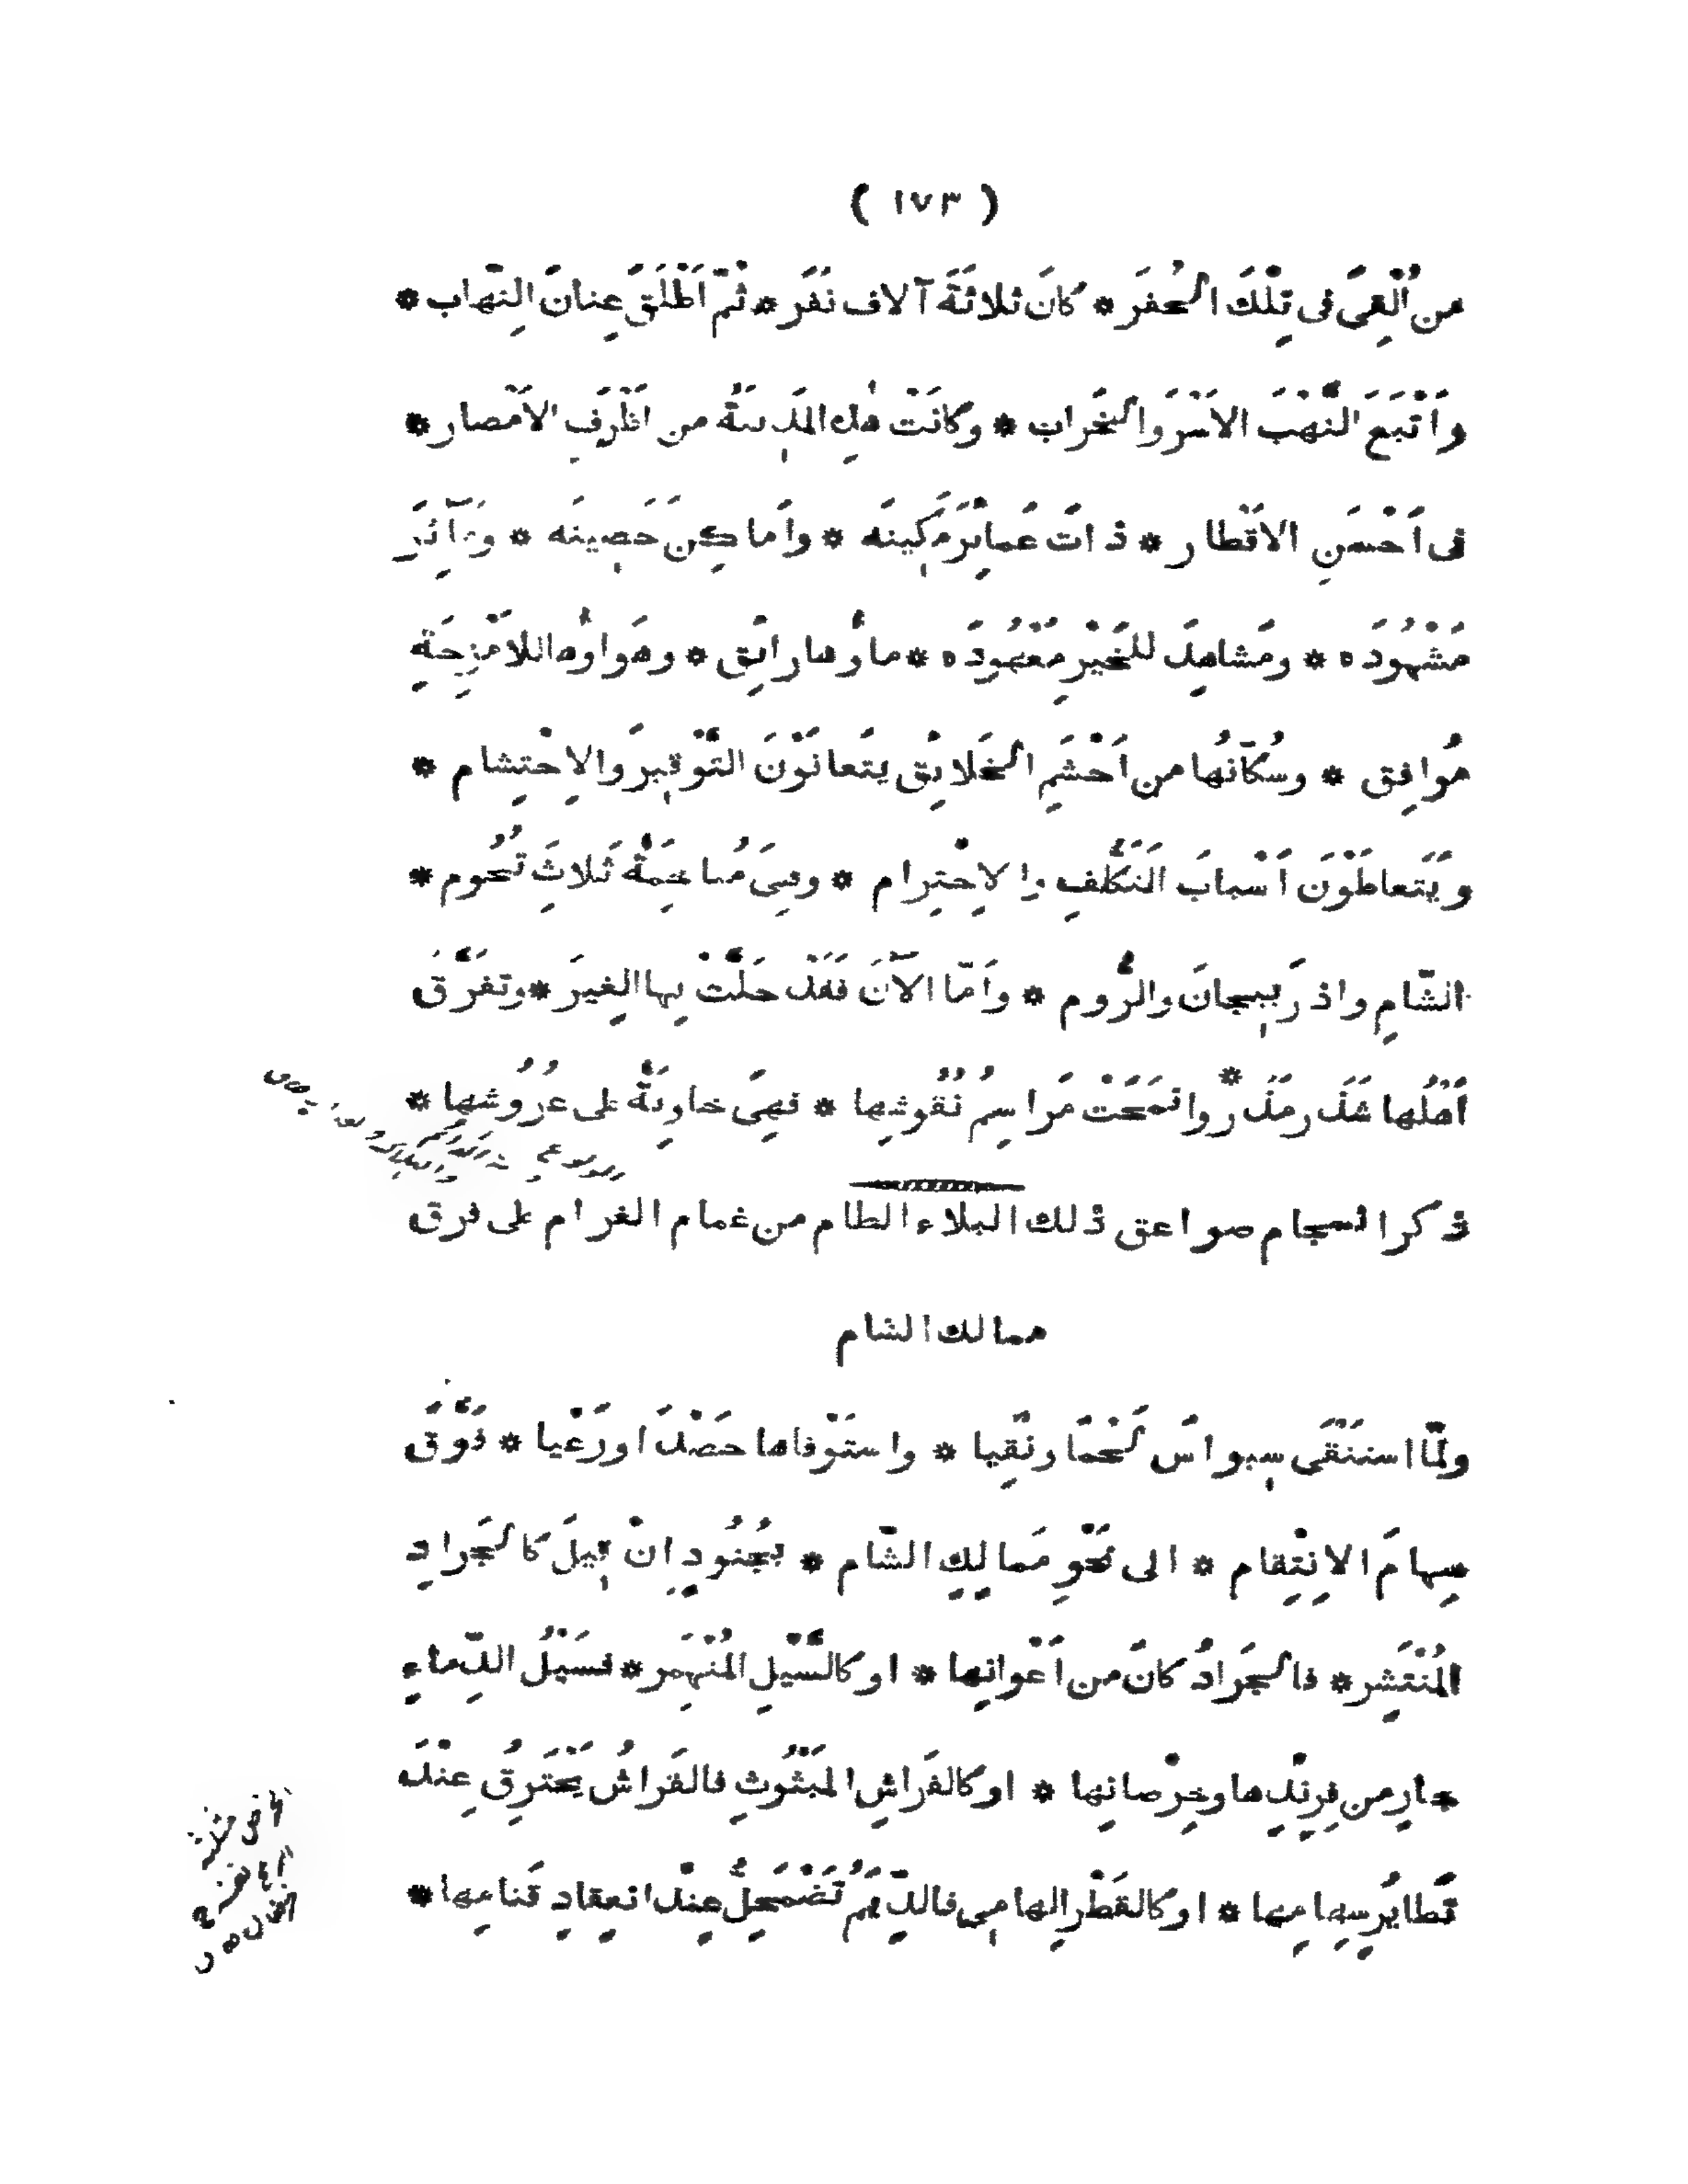 ( ١٧٣ )
من أُلْقِىَ فى تِلْكَ الحُفَر * كانَ ثلاثَةَ آلاف نَفَر * ثُمَّ اَطْلَقَ عِنانَ النِّهاب *
واَتْبَعَ النَّهْبَ الاَسْرَ والخَراب * وكانَتْ هٰذِهِ المَدِينَةُ من اَظْرَفِ الاَمْصار *
فى اَحْسَنِ الاَقْطار * ذاتَ عَمائِرَ مَكِينَه * واَماكِنَ حَصِينَه * ومَآثِرَ
مَشْهُودَه * ومَشاهِدَ للخَيْرِ مَعْهُودَه * ماؤُها رائِق * وهَواؤُها للاَمْزِجَةِ
مُوافِق * وسُكّانُها من اَحْشَمِ الخَلائِق يتَعانَوْنَ التَّوْقِيرَ والاِحْتِشام *
ويَتَعاطَوْنَ اَسْبابَ التَكَلُّفِ والاِحْتِرام * وهِىَ مُتاخِمَةٌ ثَلاثَ تُخُوم *
الشّامِ واذرَبِيجانَ والرُّوم * واَمّا الآنَ فقَدْ حَلَّتْ بِها الغِيَر * وتفَرَّقَ
اَهْلُها شَذَرَ مَذَرَ * وانْمَحَتْ مَراسِمُ نُقُوشِها * فهِىَ خاوِيَةٌ على عُرُوشِها *
ذكر انسجام صواعق ذلك البلاء الطام من غمام الغرام على فرق
ممالك الشام
ولَمّا استَنْقَى سِيواسَ لَحْمًا ونِقْيا * واستَوْفاها حَصْدًا ورَعْيا * فَوَّقَ
سِهامَ الاِنْتِقام * الى نَحْوِ مَمالِكِ الشّام * بجُنُودٍ اِنْ قِيلَ كالجَرادِ
المُنْتَشِر * فالجَرادُ كانَ من اَعْوانِها * او كالسَّيْلِ المُنْهَمِر * فسَيْلُ الدِّماءِ
جارٍ من فِرِنْدِها وخِرْصانِها * او كالفَراشِ المَبْثُوثِ فالفَراشُ يَحْتَرِقُ عِنْدَ
تَطايُرِ سِهامِها * او كالقَطْرِ الهامِى فالدِّيَمُ تَضْمَحِلُّ عِنْدَ انعِقادِ قَتامِها *